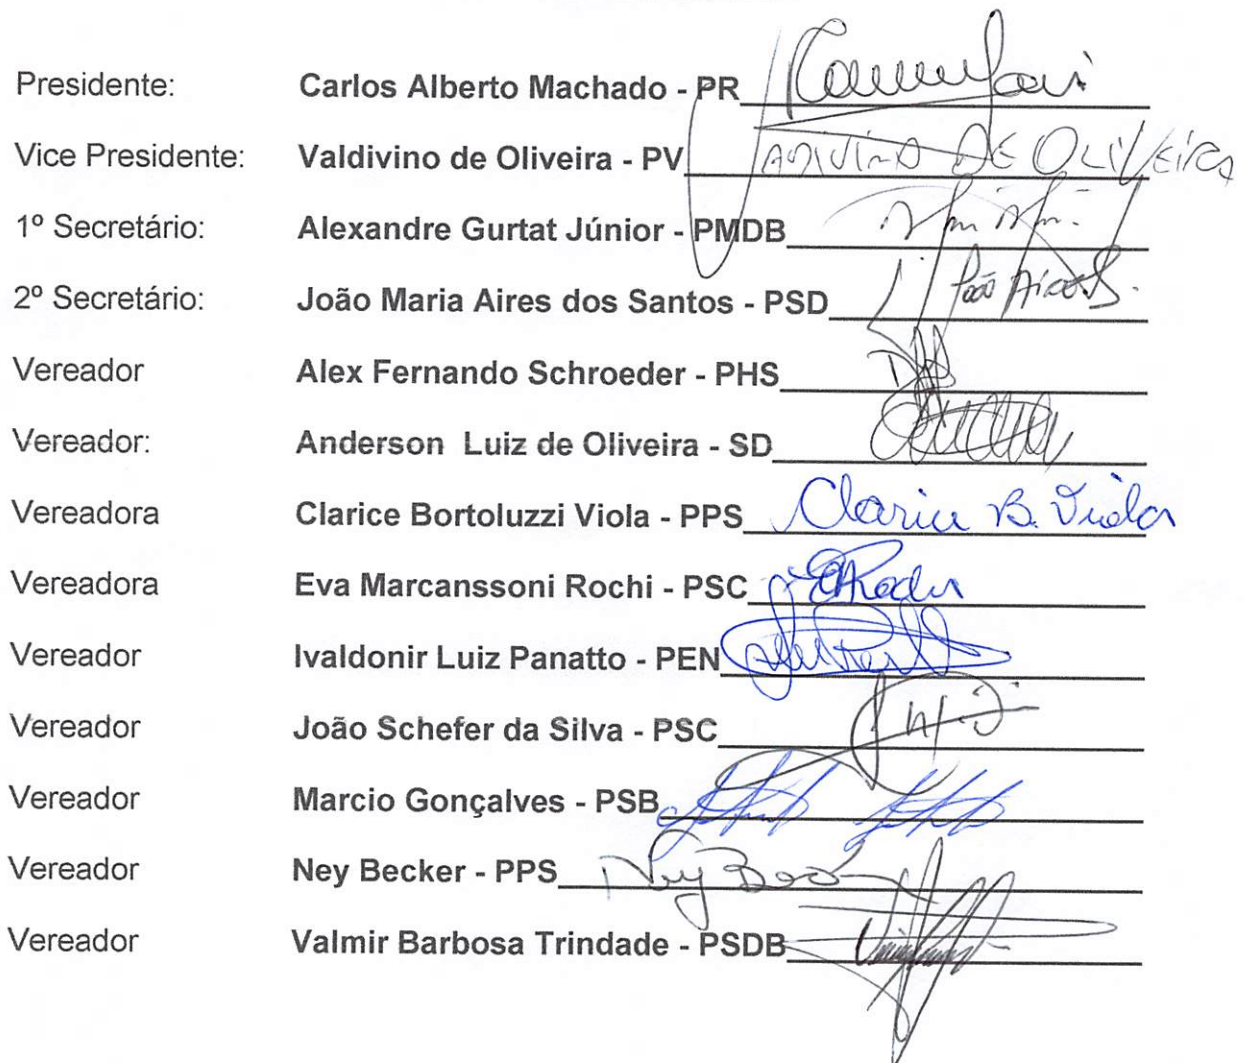 Presidente: Carlos Alberto Machado - PR
Vice Presidente: Valdivino de Oliveira - PV VALDIVINO DE OLIVEIRA
1º Secretário: Alexandre Gurtat Júnior - PMDB
2º Secretário: João Maria Aires dos Santos - PSD João Aires S.
Vereador Alex Fernando Schroeder - PHS
Vereador: Anderson Luiz de Oliveira - SD
Vereadora Clarice Bortoluzzi Viola - PPS Clarice B. Viola
Vereadora Eva Marcanssoni Rochi - PSC
Vereador Ivaldonir Luiz Panatto - PEN
Vereador João Schefer da Silva - PSC
Vereador Marcio Gonçalves - PSB
Vereador Ney Becker - PPS Ney Becker
Vereador Valmir Barbosa Trindade - PSDB